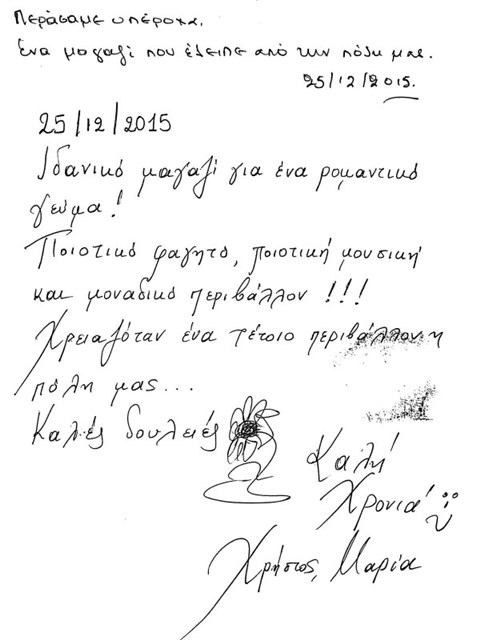 Περάσαμε υπέροχα.
Ένα μαγαζί που έλειπε από την πόλη μας.
25/12/2015.
25/12/2015
Ιδανικό μαγαζί για ένα ρομαντικό
γεύμα!
Ποιοτικό φαγητό, ποιοτική μουσική
και μοναδικό περιβάλλον!!!
Χρειαζόταν ένα τέτοιο περιβάλλον η
πόλη μας...
Καλές δουλειές
Καλή
Χρονιά!
Χρήστος, Μαρία